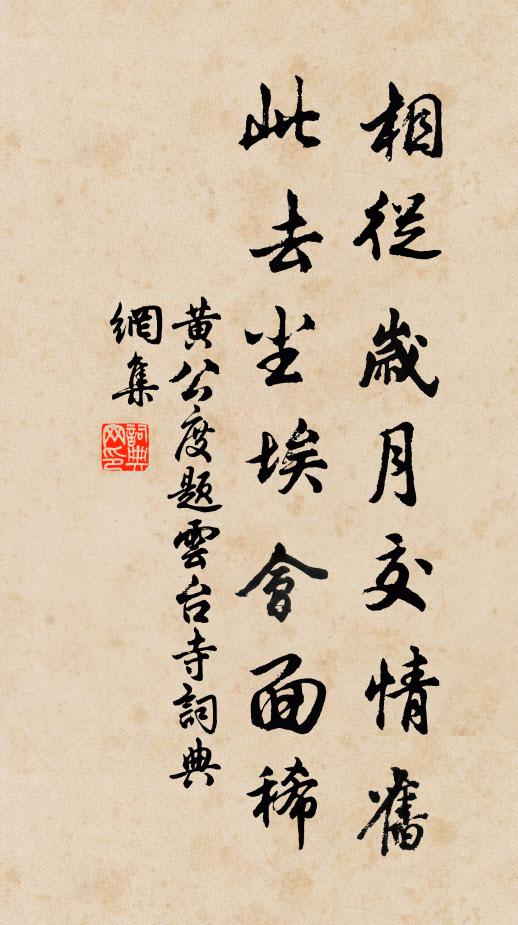 相從歲月交情舊
此去尘埃會面稀
黃公度題雲台寺詞典
網集
詞典
网印